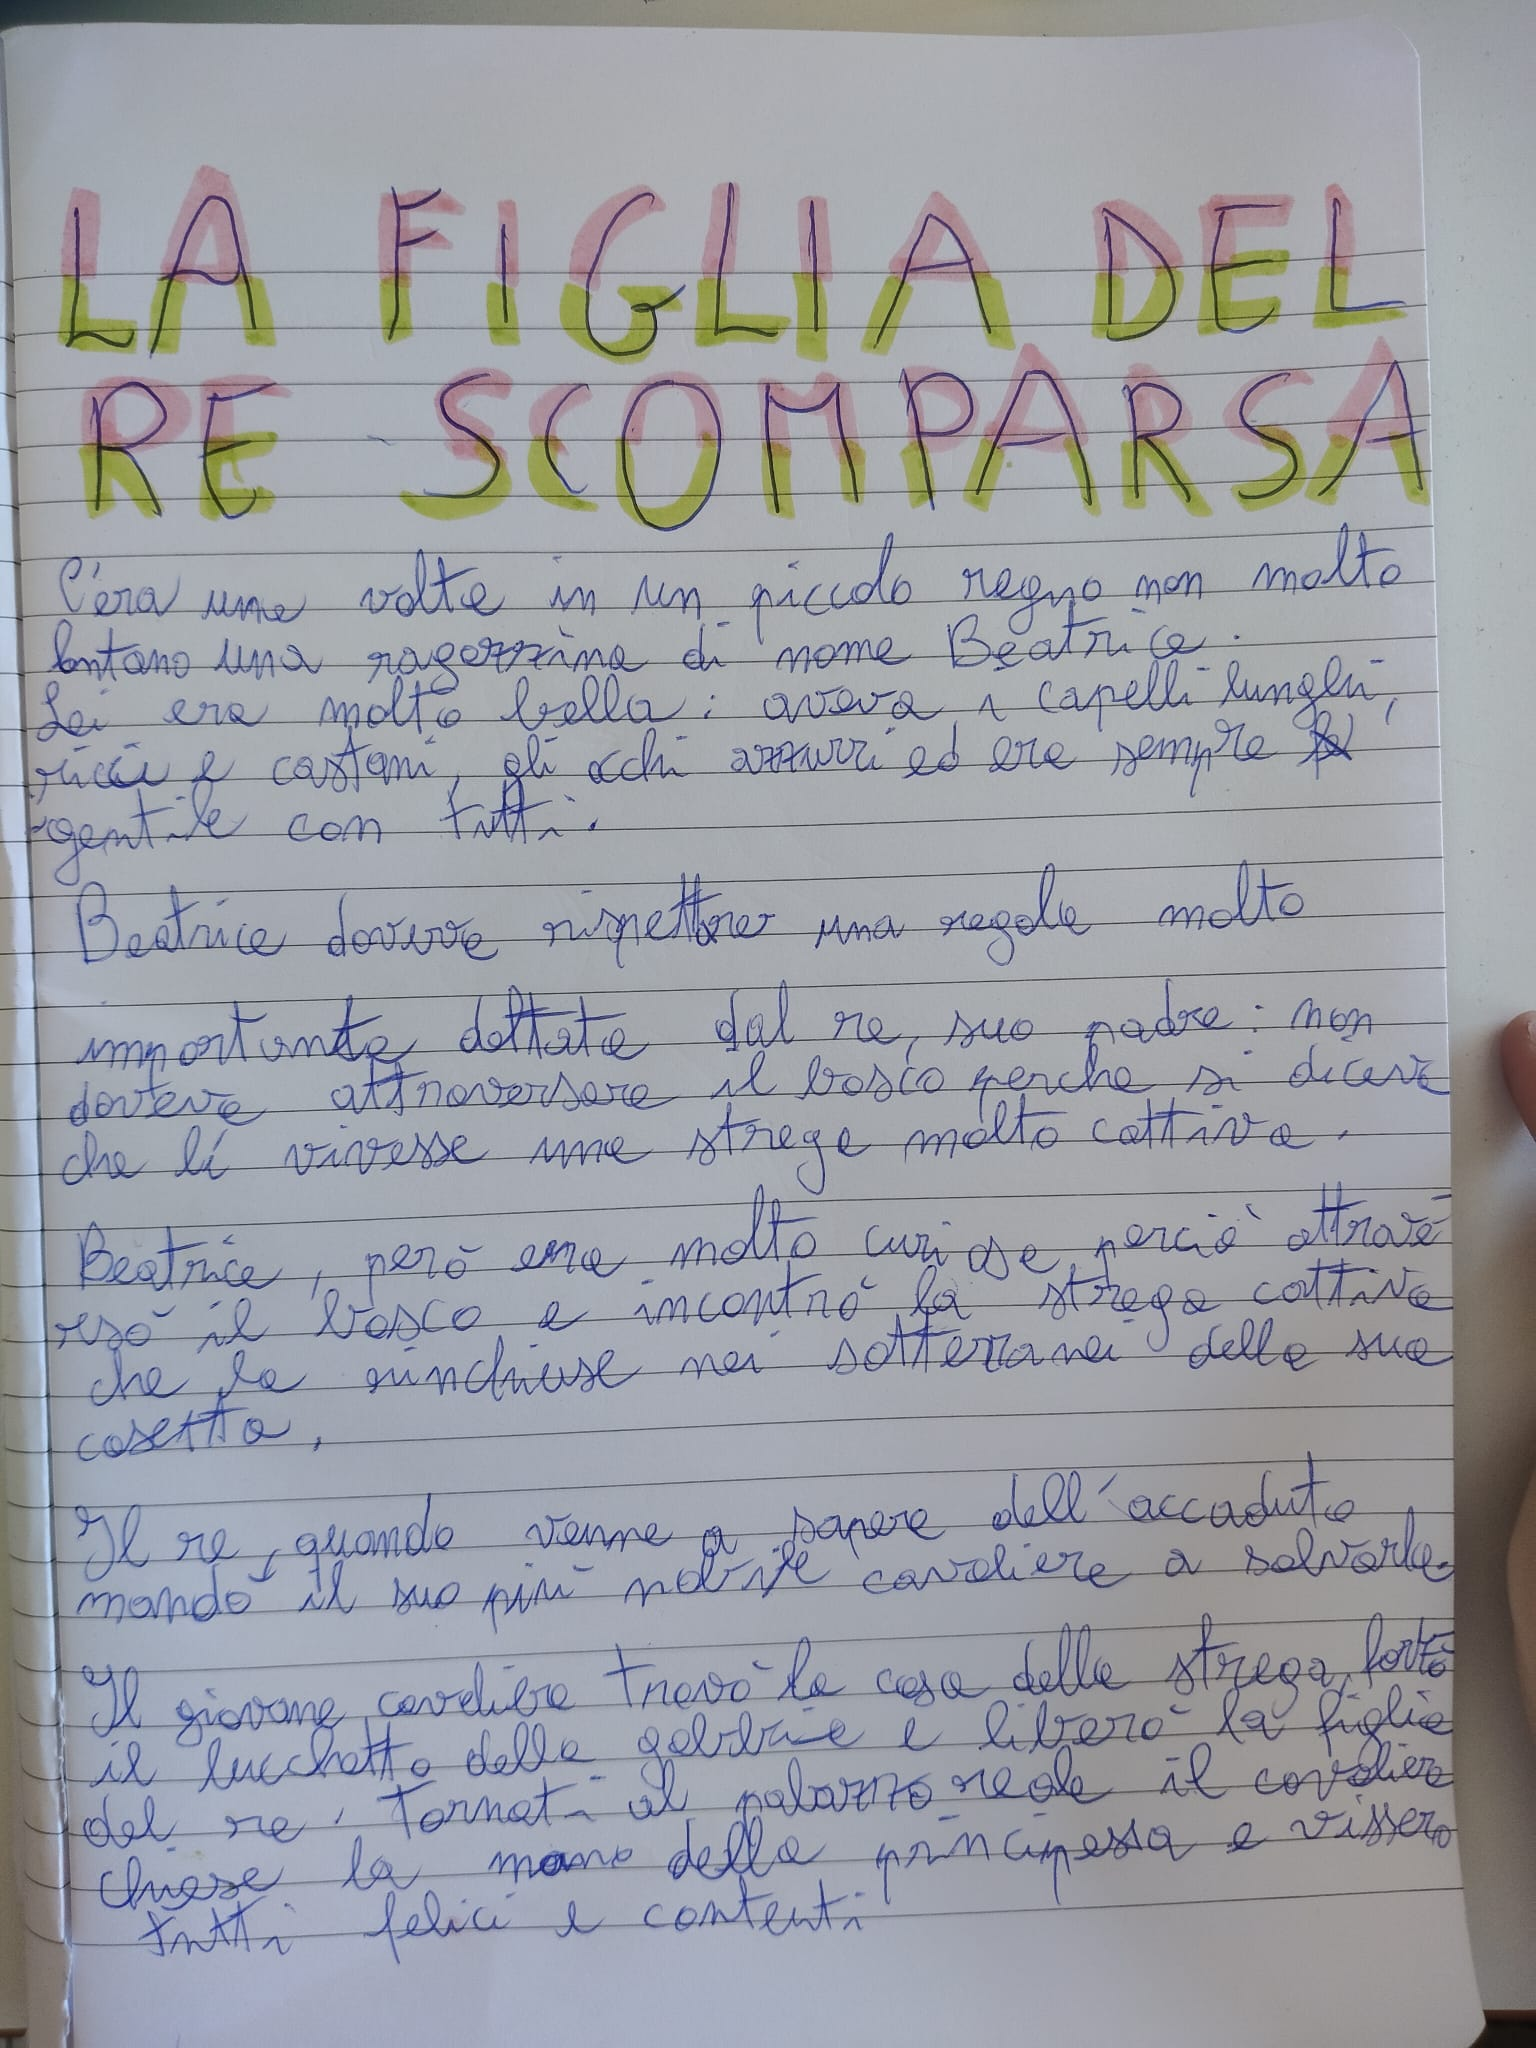 LA FIGLIA DEL
RE SCOMPARSA
C'era una volta in un piccolo regno non molto
lontano una ragazzina di nome Beatrice.
Lei era molto bella: aveva i capelli lunghi,
ricci e castani, gli occhi azzurri ed era sempre
gentile con tutti.
Beatrice doveva rispettare una regola molto
importante dettata dal re, suo padre: non
doveva attraversare il bosco perche si diceva
che lí vivesse una strega molto cattiva.
Beatrice, però era molto curiosa perciò attrave
rsò il bosco e incontrò la strega cattiva
che la rinchiuse nei sotterranei della sua
casetta.
Il re, quando venne a sapere dell'accaduto
mandò il suo più nobile cavaliere a salvarla.
Il giovane cavaliere trovò la casa della strega,
il lucchetto della gabbia e liberò la figlia
del re. Tornati al palazzo reale il cavaliere
chiese la mano della principessa e vissero
tutti felici e contenti